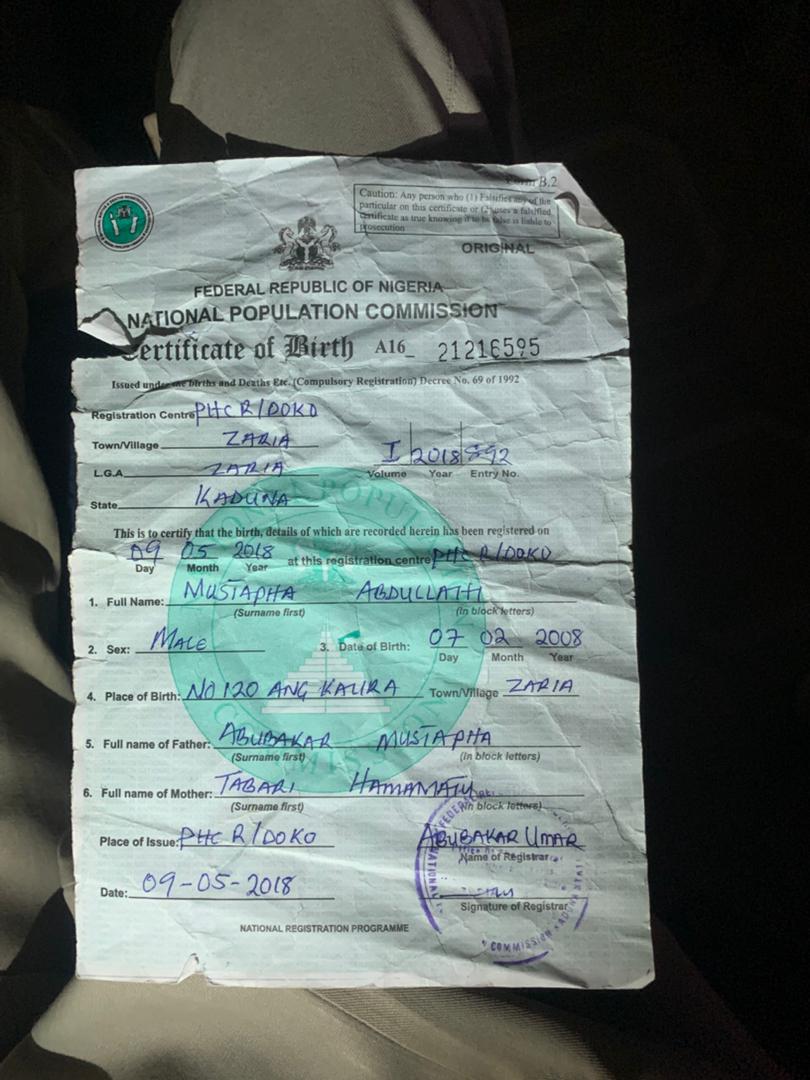 Form B.2
Caution: Any person who (1) Falsifies any of the
particular on this certificate or (2) uses a falsified
certificate as true knowing it to be false is liable to
prosecution
ORIGINAL
FEDERAL REPUBLIC OF NIGERIA
NATIONAL POPULATION COMMISSION
Certificate of Birth A16_ 21216595
Issued under the births and Deaths Etc. (Compulsory Registration) Decree No. 69 of 1992
Registration Centre PHC R/DOKO
Town/Village ZARIA
I 2018 892
L.G.A ZARIA
Volume Year Entry No.
State KADUNA
This is to certify that the birth, details of which are recorded herein has been registered on
09 05 2018 at this registration centre PHC R/DOKO
Day Month Year
1. Full Name: MUSTAPHA ABDULLAHI
(Surname first) (In block letters)
2. Sex: MALE 3. Date of Birth: 07 02 2008
Day Month Year
4. Place of Birth: NO 120 ANG KAURA Town/Village ZARIA
5. Full name of Father: ABUBAKAR MUSTAPHA
(Surname first) (In block letters)
6. Full name of Mother: TABARI HAMAMATU
(Surname first) (In block letters)
Place of Issue: PHC R/DOKO ABUBAKAR UMAR
Name of Registrar
Date: 09-05-2018
Signature of Registrar
NATIONAL REGISTRATION PROGRAMME